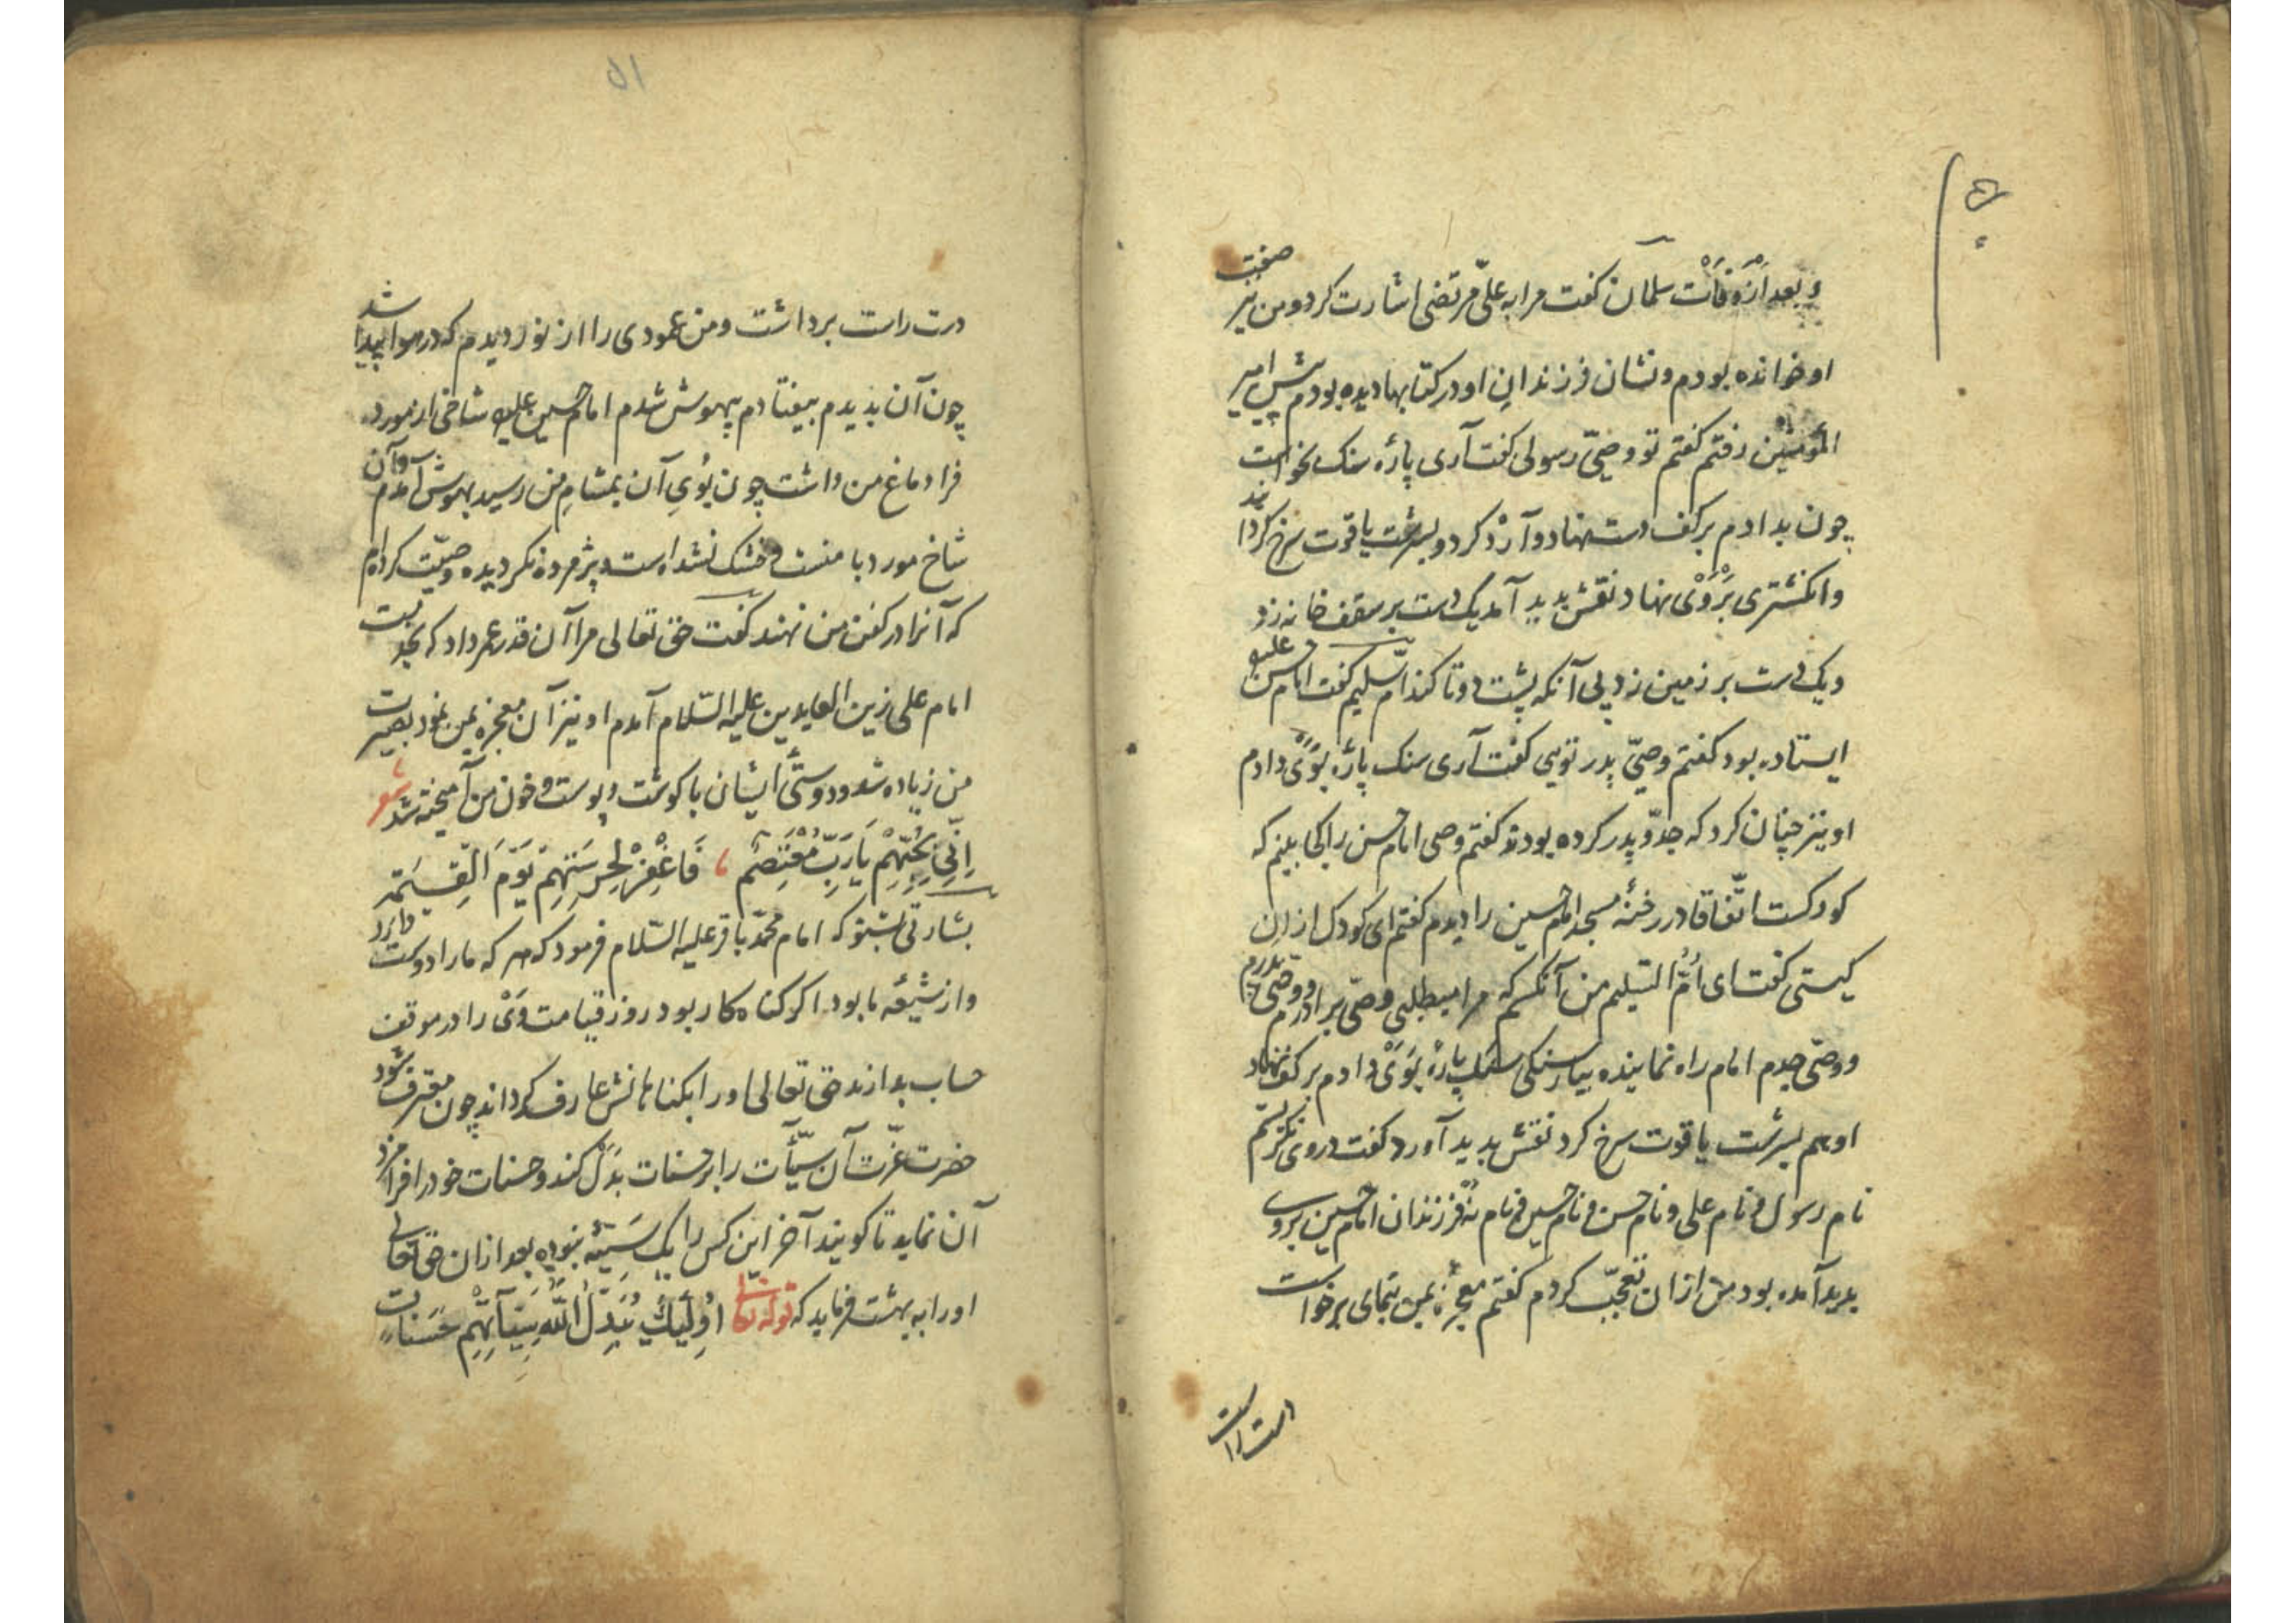 و بعد از وفات سلمان کفت مرا به علیّ مرتضی اشارت کرد و من نیز صفت
او خوانده بودم و نشان فرزندان او در کتابها دیده بودم پیش امیر
المؤمنین رفتم کفتم تو وصیّ رسولی کفت آری پارهٔ سنک بخواست
چون بدادم بر کف دست نهاد و آرد کرد و بسرشت یاقوت سرخ کردانید
و انکشتری بر وی نهاد نقش پدید آمد یک دست بر سقف خانه زد
و یک دست بر زمین زد بی آنکه پشت دوتا کند امّ سلیم کفت امام حسن علیه
ایستاده بود کفتم وصیّ پدر تویی کفت آری سنک پارهٔ بوی دادم
او نیز چنان کرد که جدّ و پدر کرده بودند کفتم وصی امام حسن را کجا بینم که
کودکست اتّفاقا در رخنهٔ مسجد امام حسین را دیدم کفتم ای کودک از آن
کیستی کفت ای امّ السلیم من آنکسم که مرا میطلبی وصیّ برادرم و وصیّ پدرم
و وصّی جدم امام راه نماینده بیار سنکی سنک پارهٔ بوی دادم بر کف نهاد
او هم بسرشت یاقوت سرخ کرد نقش پدید آورد کفت در وی نکر نکرستم
نام رسول و نام علی و نام حسن و نام حسین و نام نُه فرزندان امام حسین بر وی
پدید آمده بود من از آن تعجّب کردم کفتم معجزه بمن بنمای برخواست
دست راست
۵۱
دست راست برداشت و من عمودی را از نور دیدم که در هوا پیدا شد
چون آن بدیدم بیفتادم بیهوش شدم امام حسین علیه شاخی از مورد
فرا دماغ من داشت چون بُویِ آن بمشامِ من رسید بهوش آمدم و آن
شاخ مورد با منست و خشک نشده است و پژمرده نکردیده وصیّت کرده‌ام
که آنرا در کفن من نهند کفت حق تعالی مرا آن قدر عمر داد که بخدمت
امام علی زین العابدین علیه السّلام آمدم او نیز آن معجزه بمن نمود بصیرت
من زیاده شد و دوستی ایشان با کوشت و پوست و خون من آمیخته شد شعر
اِنّی بِحُبِّهِمْ یَا رَبِّ مُعْتَصِمٌ ، فَاغْفِرْ لِحُرْمَتِهِمْ یَوْمَ الْقِیٰمَةِ
بشارتی بشنو که امام محمّد باقر علیه السّلام فرمود که هر که ما را دوست دارد
و از شیعهٔ ما بود اکر کناه کار بود روز قیامت وَیْ را در موقف
حساب بدارند حق تعالی او را بکناهانش عارف کرداند چون معترف شود
حضرت عزّت آن سیّئات را بر حسنات بدل کند و حسنات خود را فرا مزد
آن نماید تا کویند آخر این کس را یک سَیّئه نبوده بعد از آن حق تعالی
او را به بهشت فرماید که قوله تعالی اُولٰئِكَ یُبَدِّلُ اللّٰهُ سَیِّئَآتِهِمْ حَسَنَاتٍ